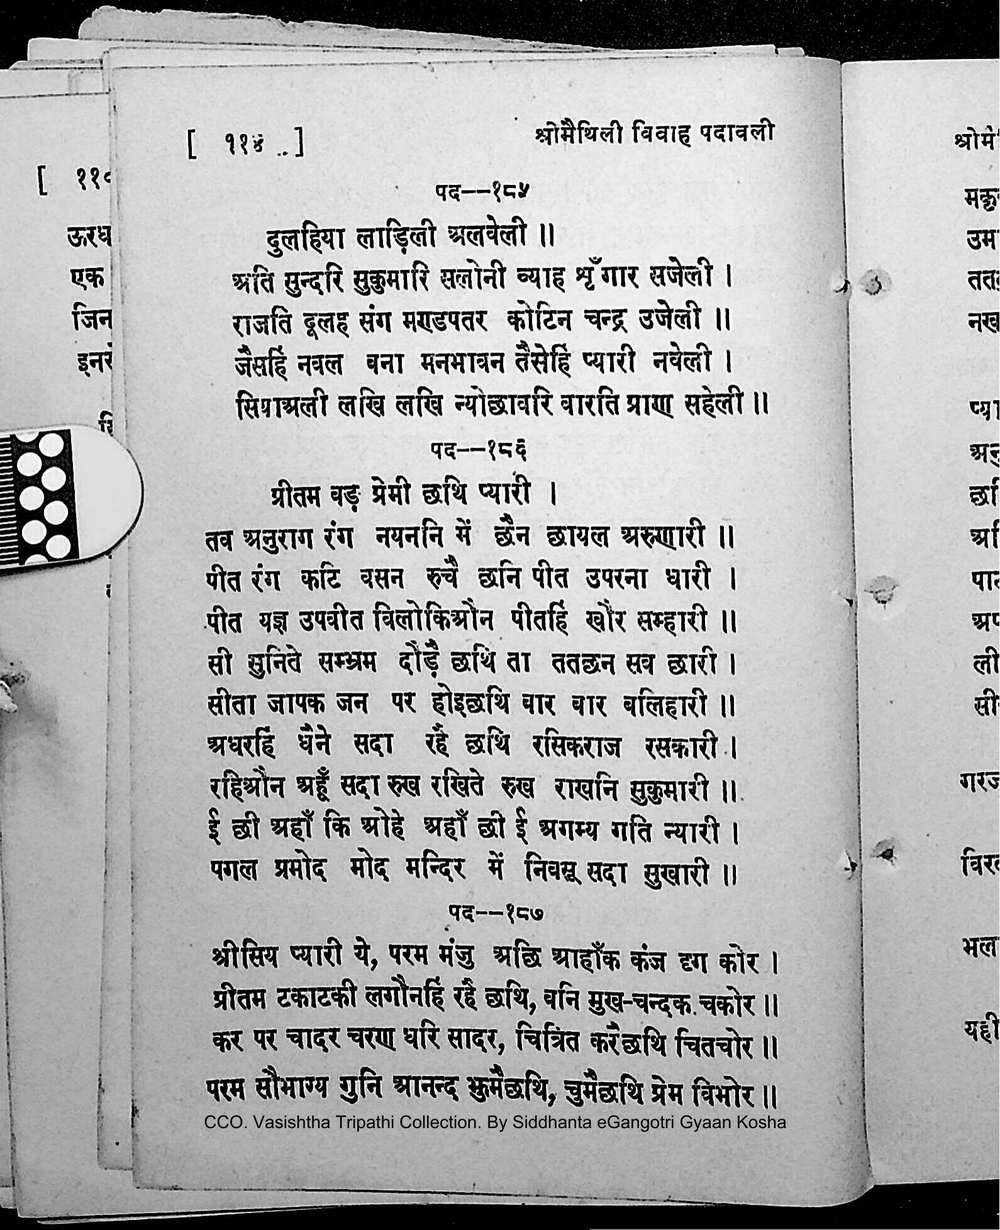 [ ११४ ]
श्रीमैथिली विवाह पदावली
पद--१८५
दुलहिया लाड़िली अलवेली ॥
अति सुन्दरि सुकुमारि सलोनी व्याह श्रृँगार सजेली ।
राजति दूलह संग मण्डपतर कोटिन चन्द्र उजेली ॥
जैसहिं नवल बना मनभावन तैसेहिं प्यारी नवेली ।
सियाअली लखि लखि न्योछावरि वारति प्राण सहेली ॥
पद--१८६
प्रीतम बड़ प्रेमी छथि प्यारी ।
तव अनुराग रंग नयननि में छैन छायल अरुणारी ॥
पीत रंग कटि वसन रुचै छनि पीत उपरना धारी ।
पीत यज्ञ उपवीत विलोकिऔन पीतहिं खौर सम्हारी ॥
सी सुनिते सम्भ्रम दौड़ै छथि ता ततछन सव छारी ।
सीता जापक जन पर होइछथि वार वार बलिहारी ॥
अधरहिं धैने सदा रहै छथि रसिकराज रसकारी ।
रहिऔन अहूँ सदा रुख रखिते रुख राखनि सुकुमारी ॥
ई छी अहाँ कि ओहे अहाँ छी ई अगम्य गति न्यारी ।
पगल प्रमोद मोद मन्दिर में निवसू सदा सुखारी ॥
पद--१८७
श्रीसिय प्यारी ये, परम मंजु अछि आहाँक कंज दृग कोर ।
प्रीतम टकाटकी लगौनहिं रहै छथि, वनि मुख-चन्दक चकोर ॥
कर पर चादर चरण धरि सादर, चित्रित करैछथि चितचोर ॥
परम सौभाग्य गुनि आनन्द झुमैछथि, चुमैछथि प्रेम विभोर ॥
CCO. Vasishtha Tripathi Collection. By Siddhanta eGangotri Gyaan Kosha
[ ११
ऊरध
एक
जिन
इनसे
श्रीमै
उम
तत
नख
प्या
छ
पा
अप
ली
सी
गरज
विर
भल
यही